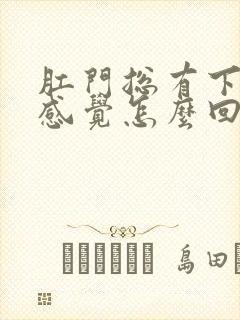 肛門総有下
感覺怎麼回
島田